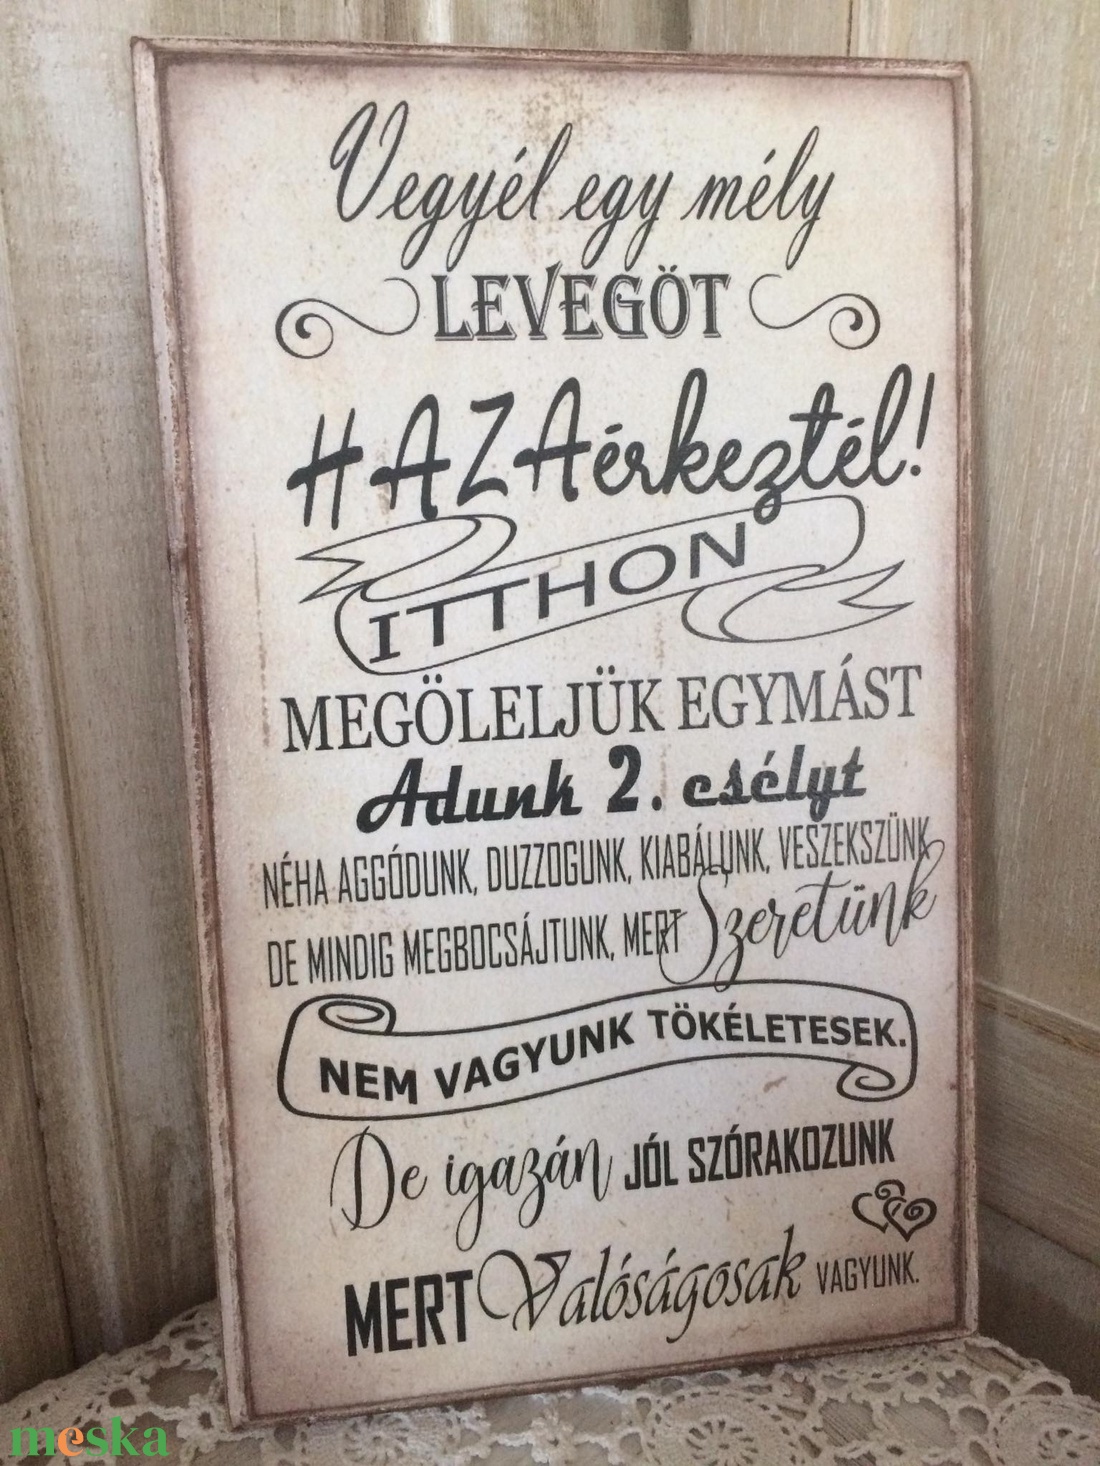 Vegyél egy mély
LEVEGÖT
HAZAérkeztél!
ITTHON
MEGÖLELJÜK EGYMÁST
Adunk 2. csélyt
NÉHA AGGÓDUNK, DUZZOGUNK, KIABÁLUNK, VESZEKSZÜNK
DE MINDIG MEGBOCSÁJTUNK, MERT Szeretünk
NEM VAGYUNK TÖKÉLETESEK.
De igazán JÓL SZÓRAKOZUNK
MERT Valóságosak VAGYUNK.
meska